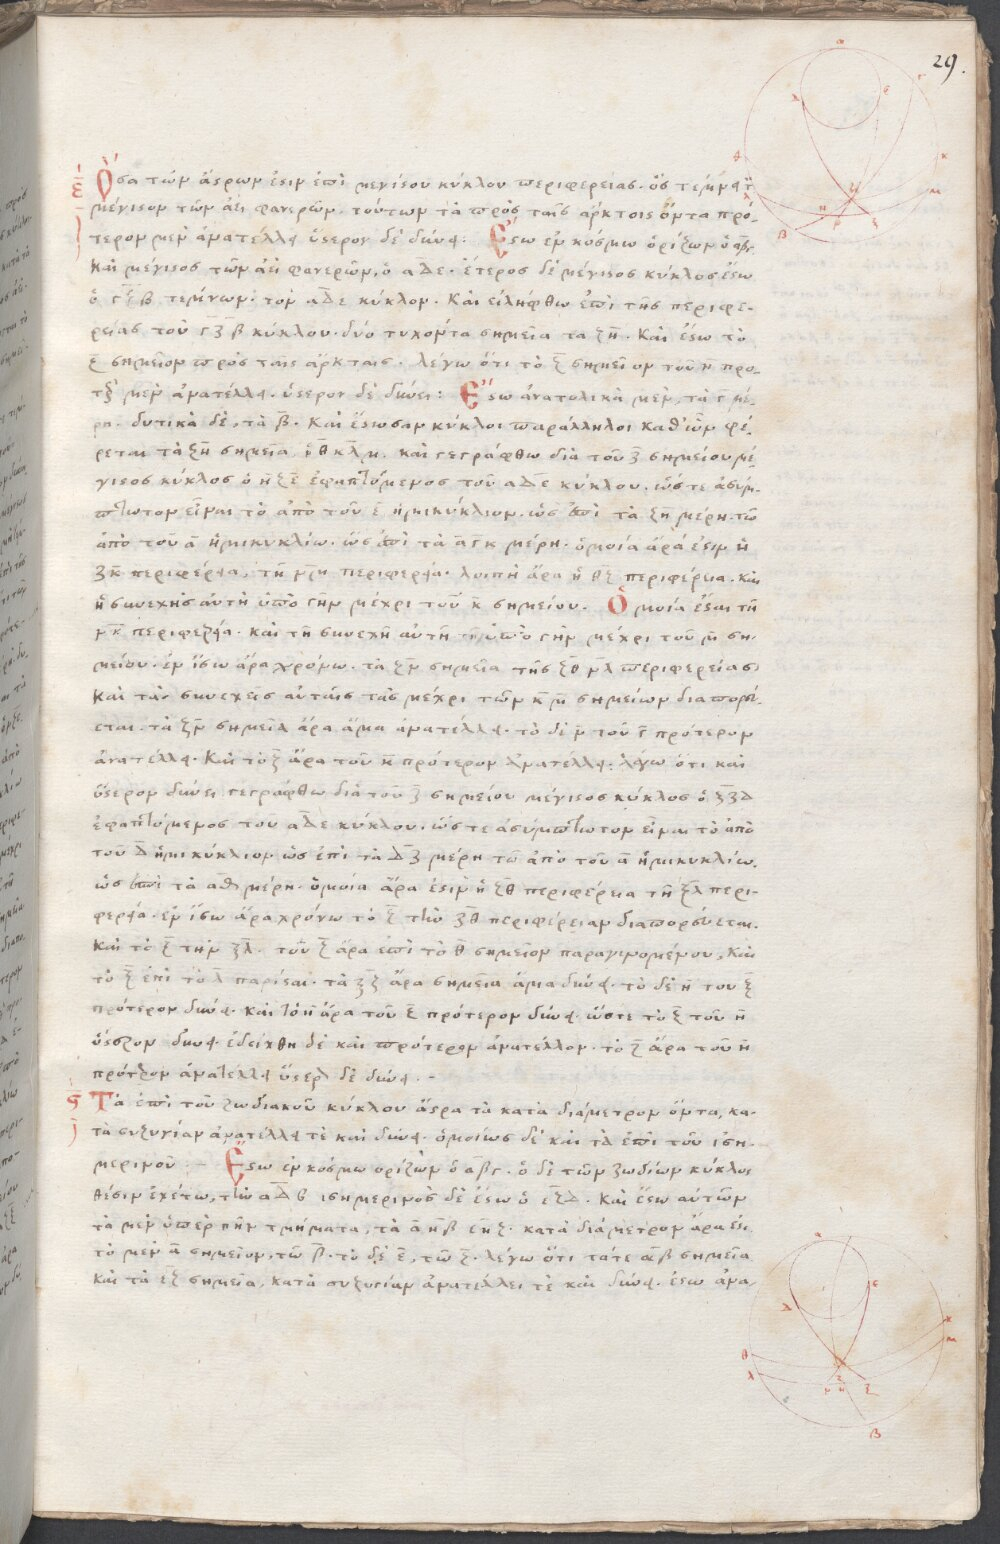 29.
ε Ὅσα τῶν ἄστρων ἐστὶν ἐπὶ μεγίστου κύκλου περιφερείας. ὃς τέμνει τὸν
μέγιστον τῶν ἀεὶ φανερῶν. τούτων τὰ πρὸς ταῖς ἄρκτοις ὄντα πρό-
τερον μὲν ἀνατέλλει ὕστερον δὲ δύνει: Ἔστω ἐν κόσμω ὁρίζων ὁ αβγ
καὶ μέγιστος τῶν ἀεὶ φανερῶν, ὁ αδε. ἕτερος δὲ μέγιστος κύκλος ἔστω
ὁ γζβ τέμνων. τὸν αδε κύκλον. καὶ εἰλήφθω ἐπὶ τῆς περιφε-
ρείας τοῦ γζβ κύκλου. δύο τυχόντα σημεῖα τα ζη. καὶ ἔστω τὸ
ζ σημεῖον πρὸς ταῖς ἄρκταις. λέγω ὅτι τὸ ζ σημεῖον τοῦ η προ-
τερον μὲν ἀνατέλλει. ὕστερον δὲ δύνει: Ἔστω ἀνατολικὰ μὲν, τὰ γ μέ-
ρη. δυτικὰ δὲ, τὰ β. καὶ ἔστωσαν κύκλοι παράλληλοι καθ' ὧν φέ-
ρεται τὰ ζη σημεῖα, θκ λμ. καὶ γεγράφθω διὰ τοῦ ζ σημείου μέ-
γιστος κύκλος ὁ νζε ἐφαπτόμενος τοῦ αδε κύκλου. ὥστε ἀσύμ-
πτωτον εἶναι τὸ ἀπὸ τοῦ ε ἡμικύκλιον. ὡς ἐπὶ τὰ ζη μέρη. τῶ
ἀπὸ τοῦ α ἡμικυκλίω. ὡς ἐπὶ τὰ αγκ μέρη. ὁμοία ἄρα ἐστὶν ἡ
ζκ περιφέρεια, τῆ νμ περιφερεία. λοιπὴ ἄρα ἡ θζ περιφέρεια. καὶ
ἡ συνεχὴς αὐτῆ ὑπὸ γῆν μέχρι τοῦ κ σημείου. Ὁμοία ἔσται τῆ
περιφερεία. καὶ τῆ συνεχῆ αὐτῆ τῆ ὑπὸ γῆν μέχρι τοῦ μ ση-
μείου. ἐν ἴσω ἄρα χρόνω. τὰ ζν σημεῖα τῆς ζθ νλ περιφερείας
καὶ τὰς συνεχεῖς αὐταῖς τὰς μέχρι τῶν κ μ σημείων διαπορεύ-
εται. τὰ ζν σημεῖα ἄρα ἅμα ἀνατέλλει. τὸ δὲ ν τοῦ πρότερον
ἀνατέλλει. καὶ τὸ ζ ἄρα τοῦ η πρότερον ἀνατέλλει: λέγω ὅτι καὶ
ὕστερον δύνει γεγράφθω διὰ τοῦ ζ σημείου μέγιστος κύκλος ὁ ξζδ
ἐφαπτόμενος τοῦ αδε κύκλου. ὥστε ἀσύμπτωτον εἶναι τὸ ἀπὸ
τοῦ δ ἡμικύκλιον ὡς ἐπὶ τὰ δζ μέρη τῶ ἀπὸ τοῦ α ἡμικυκλίω.
ὡς ἐπὶ τὰ αθ μέρη. ὁμοία ἄρα ἐστὶν ἡ ζθ περιφέρεια τῆ ξλ περι-
φερεία. ἐν ἴσω ἄρα χρόνω τὸ ζ τὴν ζθ περιφέρειαν διαπορεύεται.
καὶ τὸ ξ τὴν ξλ. τοῦ ζ ἄρα ἐπὶ τὸ θ σημεῖον παραγινομένου, καὶ
τὸ ξ ἐπὶ τὸ λ παρέσται. τὰ ζξ ἄρα σημεῖα ἅμα δύνει. τὸ δὲ η του ξ
πρότερον δύνει. καὶ τὸ η ἄρα τοῦ ζ πρότερον δύνει. ὥστε τὸ ζ τοῦ η
ὕστερον δύνει. ἐδείχθη δὲ καὶ πρότερον ἀνατέλλον. τὸ ζ ἄρα τοῦ η
πρότερον ἀνατέλλει ὕστερον δὲ δύνει. -
ς Τὰ ἐπὶ τοῦ ζωδιακοῦ κύκλου ἄστρα τὰ κατὰ διάμετρον ὄντα, κα-
τὰ συζυγίαν ἀνατέλλει τὲ καὶ δύνει. ὁμοίως δὲ καὶ τὰ ἐπὶ τοῦ ἰση-
μερινοῦ: - Ἔστω ἐν κόσμω ὁρίζων ὁ αβγ. ὁ δὲ τῶν ζωδίων κύκλος
θέσιν ἐχέτω, τὴν αδβ ἰσημερινὸς δὲ ἔστω ὁ εζδ. καὶ ἔστω αὐτῶν
τὰ μὲν ὑπὲρ γῆν τμήματα, τὰ α η β ε η ζ. κατὰ διάμετρον ἄρα ἐστι
τὸ μὲν α σημεῖον, τῶ β. τὸ δὲ ε, τῶ ζ. λέγω ὅτι τά τε αβ σημεῖα
καὶ τὰ εζ σημεῖα, κατὰ συζυγίαν ἀνατέλλει τὲ καὶ δύνει. ἔστω ἀνα-